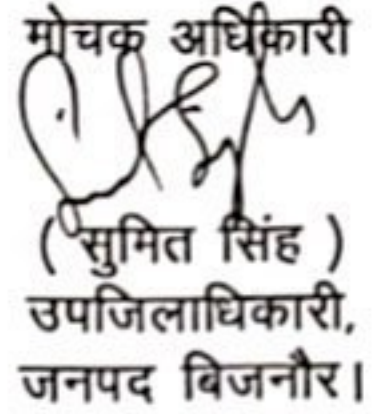 मोचक अधिकारी
( सुमित सिंह )
उपजिलाधिकारी,
जनपद बिजनौर।